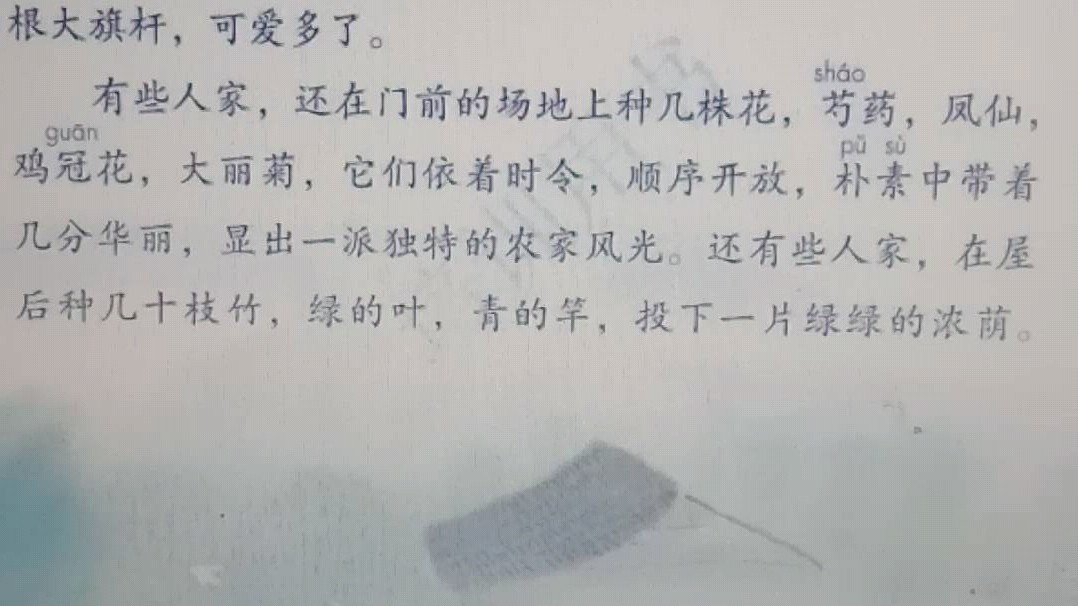 根大旗杆，可爱多了。
sháo
有些人家，还在门前的场地上种几株花，芍药，凤仙，
guān pǔ sù
鸡冠花，大丽菊，它们依着时令，顺序开放，朴素中带着
几分华丽，显出一派独特的农家风光。还有些人家，在屋
后种几十枝竹，绿的叶，青的竿，投下一片绿绿的浓荫。